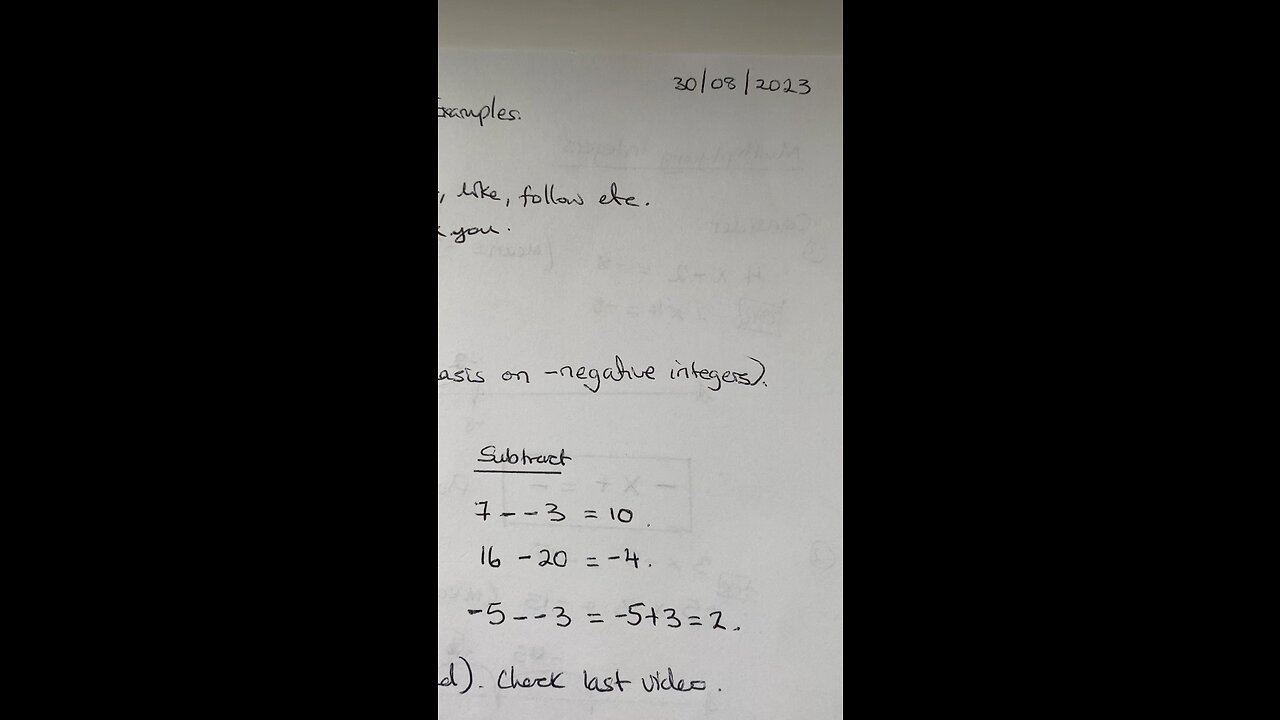 30/08/2023
Examples.
, like, follow etc.
you.
asis on -negative integers).
Subtract
7 - - 3 = 10.
16 - 20 = -4.
-5 - - 3 = -5+3 = 2.
d). Check last video.